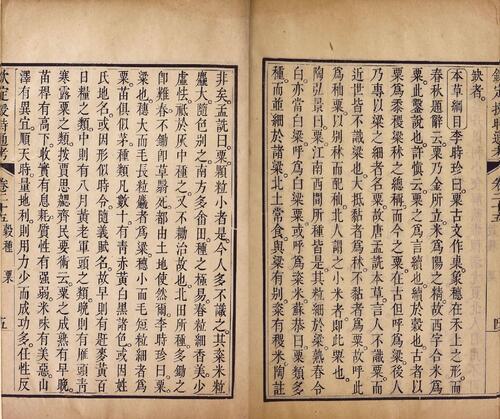 缺者。
本草綱目李時珍曰。粟古文作㮚。象穗在禾上之形。而
春秋題辭云。粟乃金所立。米為陽之精。故西字合米為
粟。此鑿說也。許慎云。粟之為言續也。續於穀也。古者以
粟為黍稷粱秫之總稱。而今之粟在古但呼為粱。後人
乃專以粱之細者名粟。故唐孟詵本草。言人不識粟。而
近世皆不識粱也。大抵黏者為秫。不黏者為粟。故呼此
為秈粟。以別秫而配秈。北人謂之小米者。即此粟也。
陶弘景曰。粟江南西間所種皆是。其粒細於粱。熟舂令
白。亦當白粱。呼為白粱粟。或呼為粢米。蘇恭曰。粟類多
種。而並細於諸粱。北土常食。與粱有別。粢有稷米。陶註
非矣。孟詵曰。粟顆粒小者是。今人多不識之。其粢米粒
麤大。隨色別之。南方多畬田。種之極易。舂粒細。香美。少
虛怯。祗於灰中種之。又不鋤治故也。北田所種。多鋤之。
即難舂。不鋤即草翳死。都由土地使然爾。李時珍曰。粟。
粱也。穗大而毛長粒麤者為粱。穗小而毛短粒細者為
粟。苗俱似茅。種類凡數十。有青赤黃白黑諸色。或因姓
氏地名。或因形似時令。隨義賦名。故早則有趕麥黃百
日糧之類。中則有八月黃老軍頭之類。晚則有雁頭青
寒露粟之類。按賈思勰齊民要術云。粟之成熟有早晚。
苗稈有高下。收實有息耗。質性有強弱。米味有美惡。山
澤有異宜。順天時。量地利。則用力少而成功多。任性反
欽定授時通考 卷二十五 穀種 粟 五